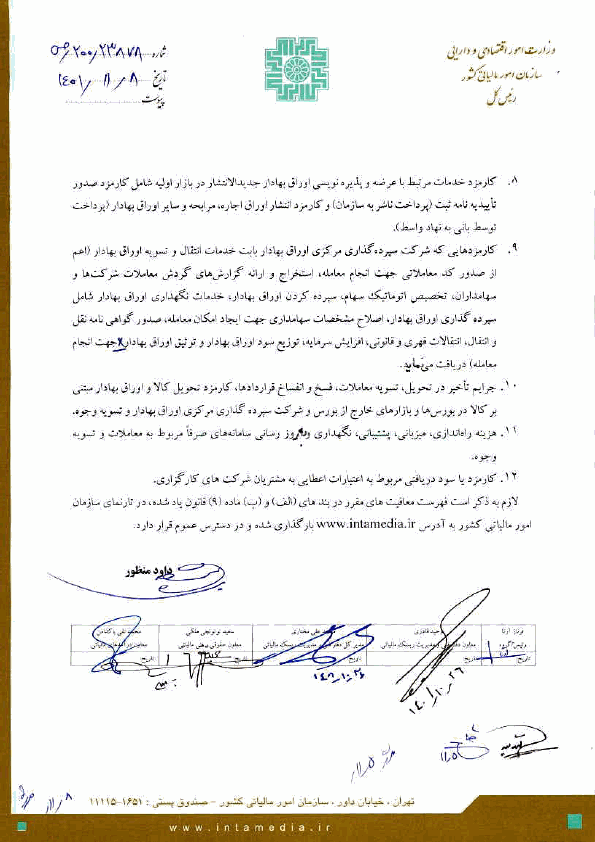 وزارت امور اقتصادی و دارایی
سازمان امور مالیاتی کشور
رئیس کل
شماره ۲۰۰/۲۳۸۷۸/ص
تاریخ ۱۴۰۱/۱۱/۰۸
پیوست
۸. کارمزد خدمات مرتبط با عرضه و پذیره نویسی اوراق بهادار جدیدالانتشار در بازار اولیه شامل کارمزد صدور
تأییدیه نامه ثبت (پرداخت ناشر به سازمان) و کارمزد انتشار اوراق اجاره، مرابحه و سایر اوراق بهادار (پرداخت
توسط بانی به نهاد واسط).
۹. کارمزدهایی که شرکت سپرده‌گذاری مرکزی اوراق بهادار بابت خدمات انتقال و تسویه اوراق بهادار (اعم
از صدور کد معاملاتی جهت انجام معامله، استخراج و ارائه گزارش‌های گردش معاملات شرکت‌ها و
سهامداران، تخصیص اتوماتیک سهام، سپرده کردن اوراق بهادار، خدمات نگهداری اوراق بهادار شامل
سپرده گذاری اوراق بهادار، اصلاح مشخصات سهامداری جهت ایجاد امکان معامله، صدور گواهی نامه نقل
و انتقال، انتقالات قهری و قانونی، افزایش سرمایه، توزیع سود اوراق بهادار و توثیق اوراق بهادار جهت انجام
معامله) دریافت می‌نماید.
۱۰. جرایم تأخیر در تحویل، تسویه معاملات، فسخ و انفساخ قراردادها، کارمزد تحویل کالا و اوراق بهادار مبتنی
بر کالا در بورس‌ها و بازارهای خارج از بورس و شرکت سپرده گذاری مرکزی اوراق بهادار و تسویه وجوه.
۱۱. هزینه راه‌اندازی، میزبانی، پشتیبانی، نگهداری و بروز رسانی سامانه‌های صرفاً مربوط به معاملات و تسویه
وجوه.
۱۲. کارمزد یا سود دریافتی مربوط به اعتبارات اعطایی به مشتریان شرکت های کارگزاری.
لازم به ذکر است فهرست معافیت های مقرر در بند های (الف) و (ب) ماده (۹) قانون یاد شده، در تارنمای سازمان
امور مالیاتی کشور به آدرس www.intamedia.ir بارگذاری شده و در دسترس عموم قرار دارد.
داود منظور
سعید توتونچی ملکی
معاون حقوقی و فنی مالیاتی
تاریخ
تاریخ
تاریخ
تاریخ
۱۴۰۱/۱۰/۲۶
تهران ، خیابان داور ، سازمان امور مالیاتی کشور - صندوق پستی : ۱۶۵۱-۱۱۱۱۵
www.intamedia.ir